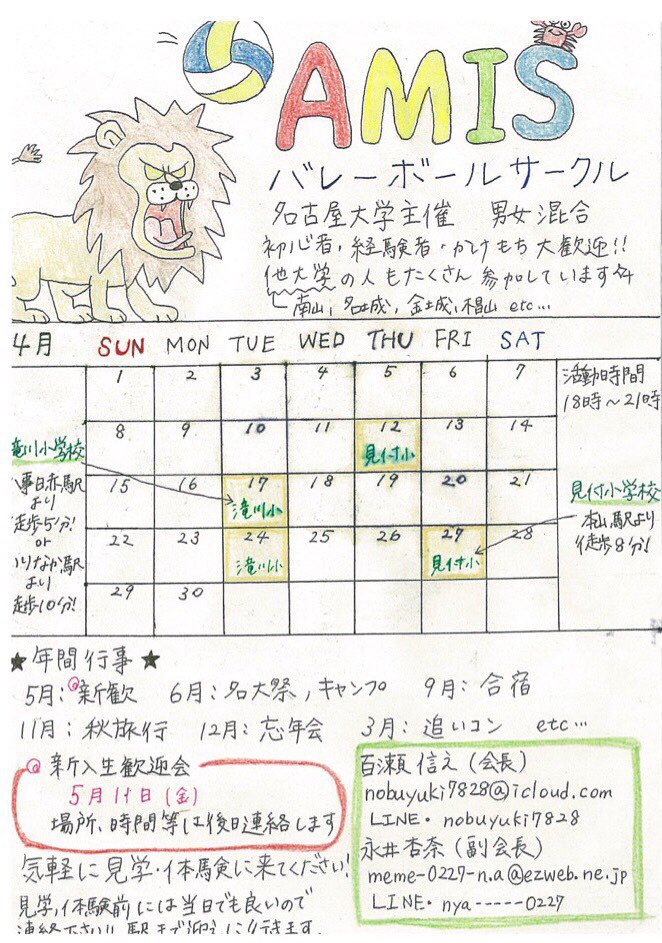 AMIS
バレーボールサークル
名古屋大学主催 男女混合
初心者,経験者・かけもち大歓迎!!
他大学の人もたくさん参加しています
南山,名城,金城,椙山 etc…
4月 SUN MON TUE WED THU FRI SAT
1 2 3 4 5 6 7
活動時間
18時〜21時
8 9 10 11 12 13 14
見付小
滝川小学校
八事日赤駅
より
徒歩5分!
or
いりなか駅
より
徒歩10分!
15 16 17 18 19 20 21
滝川小
見付小学校
本山駅より
徒歩8分!
22 23 24 25 26 27 28
滝川小 見付小
29 30
★年間行事★
5月:新歓 6月:名大祭,キャンプ 9月:合宿
11月:秋旅行 12月:忘年会 3月:追いコン etc…
新入生歓迎会
5月11日(金)
場所、時間等は後日連絡します
百瀬信え(会長)
nobuyuki7828@icloud.com
LINE・nobuyuki7828
永井杏奈(副会長)
meme-0227-n.a@ezweb.ne.jp
LINE・nya-----0227
気軽に見学・体験に来てください!
見学,体験前には当日でも良いので
連絡下さい!!駅まで迎えに行きます